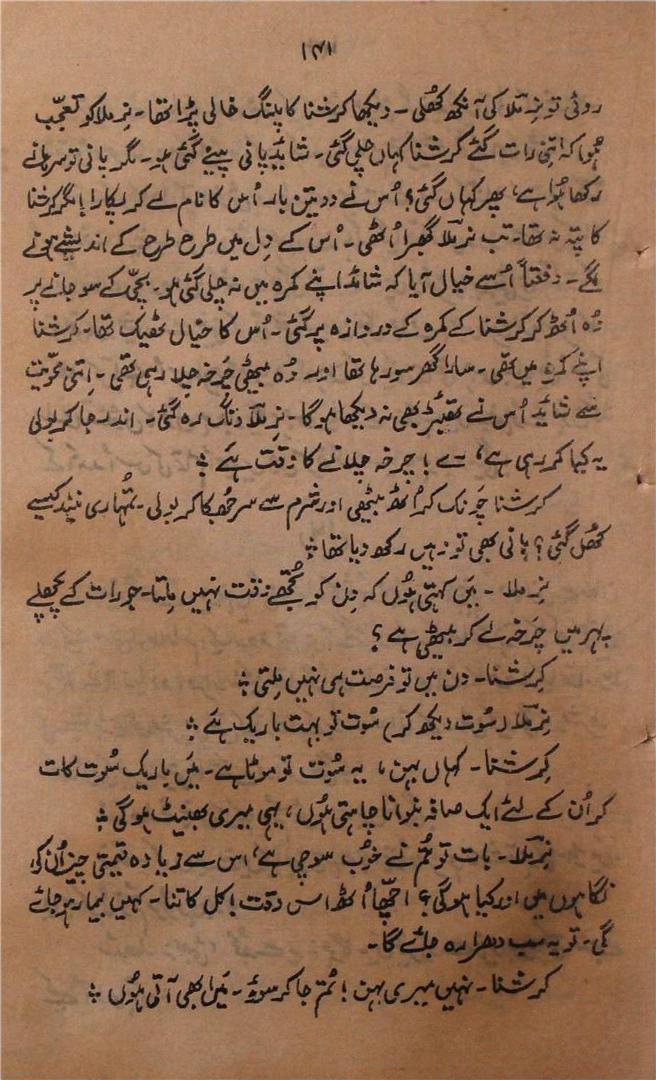 ۱۴۱
روئی تو نِرملا کی آنکھ کھُلی ۔ دیکھا کرشنا کا پلنگ خالی پڑا تھا ۔ نِرملا کو تعجّب
ہُوا کہ اتنی رات گئے کرشنا کہاں چلی گئی ۔ شائد پانی پینے گئی ہو ۔ مگر پانی تو سرہانے
رکھا ہُوا ہے، پھر کہاں گئی؟ اُس نے دو تین بار اُس کا نام لے کر پکارا! مگر کرشنا
کا پتہ نہ تھا۔ تب نرملا گھبرا اُٹھی ۔ اُس کے دِل میں طرح طرح کے اندیشے ہونے
لگے ۔ دفعتاً اُسے خیال آیا کہ شائد اپنے کمرہ میں نہ چلی گئی ہو ۔ بچّی کے سو جانے پر
وُہ اُٹھ کر کرشنا کے کمرہ کے دروازہ پر گئی ۔ اُس کا خیال ٹھیک تھا ۔ کرشنا
اپنے کمرہ میں تھی ۔ سارا گھر سو رہا تھا اور وُہ بیٹھی چرخہ چلا رہی تھی ۔ اِتنی محویت
سے شائد اُس نے تھیٹر بھی نہ دیکھا ہوگا ۔ نِرملا دنگ رہ گئی ۔ اندر جا کر بولی
یہ کیا کر رہی ہے، رے! چرخہ چلانے کا وقت ہے ؛
کرشنا چَونک کر اُٹھ بیٹھی اور شرم سے سر جھُکا کر بولی ۔ تُمہاری نیند کیسے
کھُل گئی؟ پانی بھی تو نہیں رکھ دیا تھا ؛
نِرملا ۔ میَں کہتی ہُوں کہ دِن کو تُجھے وقت نہیں مِلتا ۔ جو رات کے پچھلے
پہر میں چَرخہ لے کر بیٹھی ہے؟
کِرشنا ۔ دن میں تو فرصت ہی نہیں مِلتی ؛
نِرملا (سُوت دیکھ کر) سُوت تو بہت باریک ہے ؛
کِرشنا ۔ کہاں بہن، یہ سُوت تو موٹا ہے ۔ میَں باریک سُوت کات
کر اُن کے لئے ایک صافہ بنوانا چاہتی ہُوں، یہی میری بھینٹ ہوگی ؛
نِرملا ۔ بات تو تُم نے خُوب سوچی ہے، اس سے زیادہ قیمتی چیز اُن کی
نگاہوں میں اور کیا ہوگی؟ اچھّا اُٹھ اس وقت! کل کاتنا ۔ کہیں بیمار پڑ جائے
گی ۔ تو یہ سب دھرا رہ جائے گا ۔
کرشنا ۔ نہیں میری بہن! تُم جا کر سوؤ ۔ میَں ابھی آتی ہُوں ؛